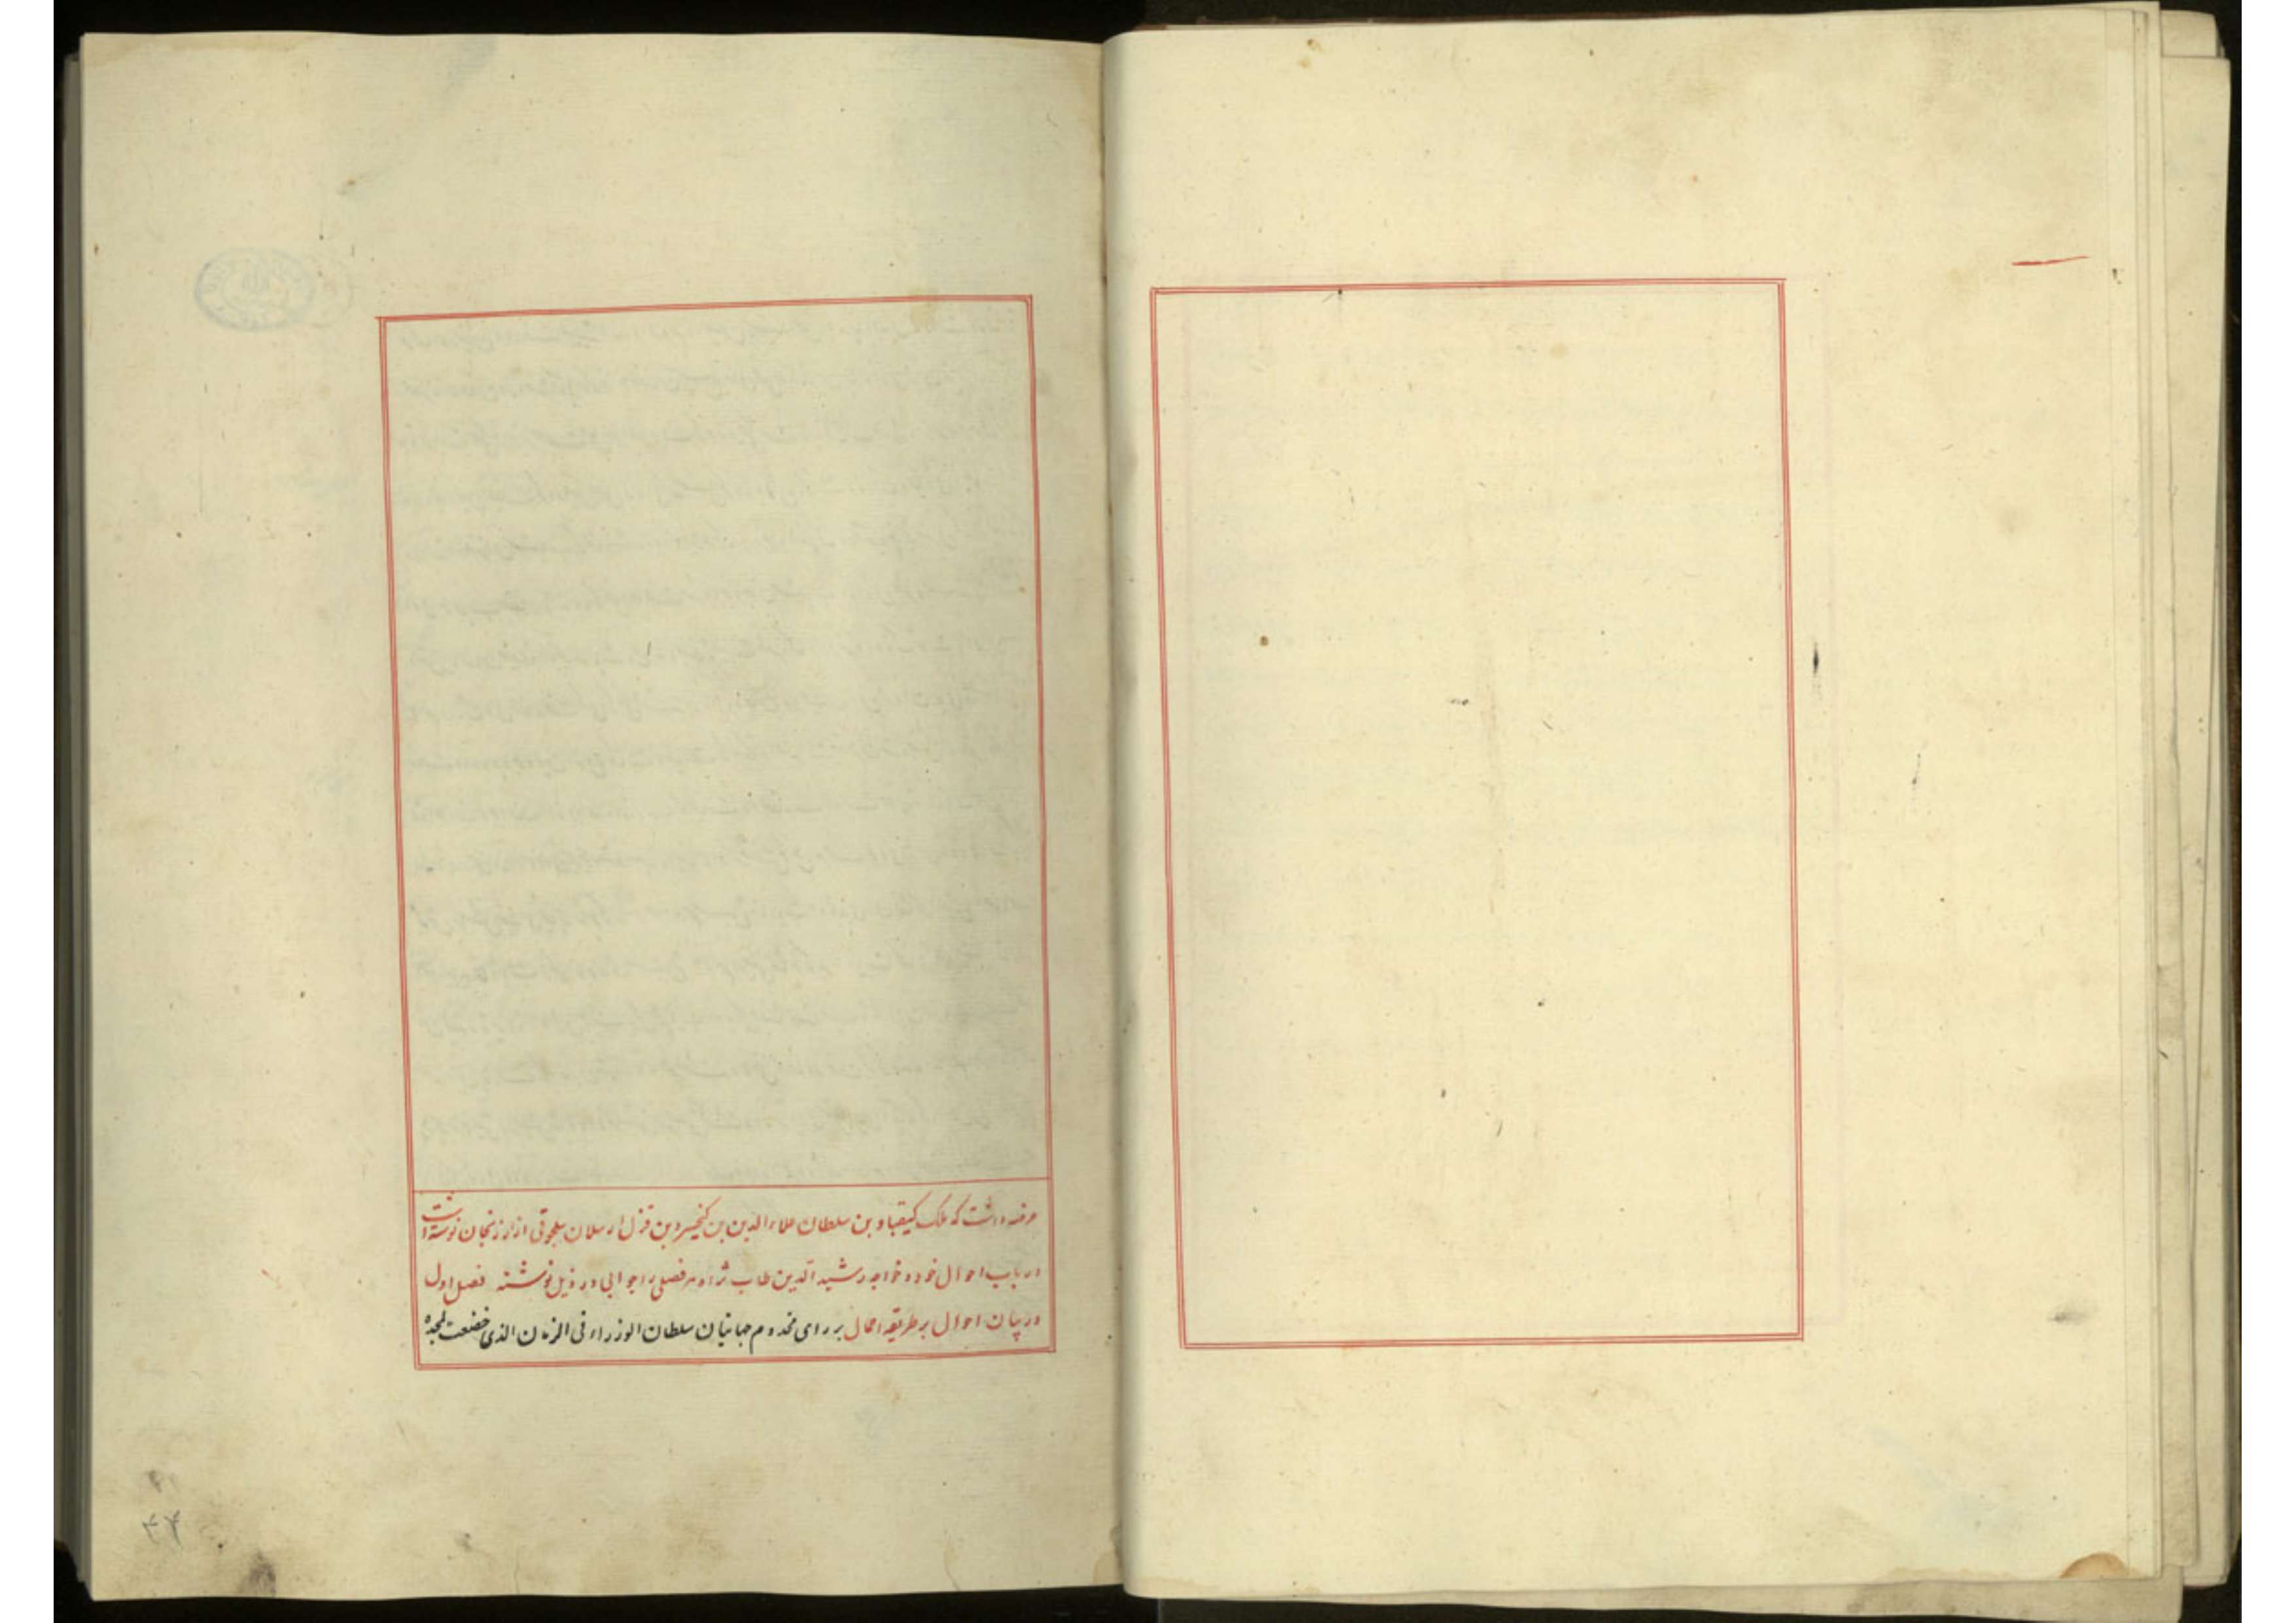 عرضه داشت که ملک کیقباد بن سلطان علاء الدین بن کیخسرو بن قزل ارسلان سلجوقی از ارزنجان نوشته است
در باب احوال خود و خواجه رشید الدین طاب ثراه هر فصلی را جوابی در ذیل نوشته فصل اول
در بیان احوال بر طریقه اجمال بر رای مخدوم جهانیان سلطان الوزراء فی الزمان الذی خضعت لمجده